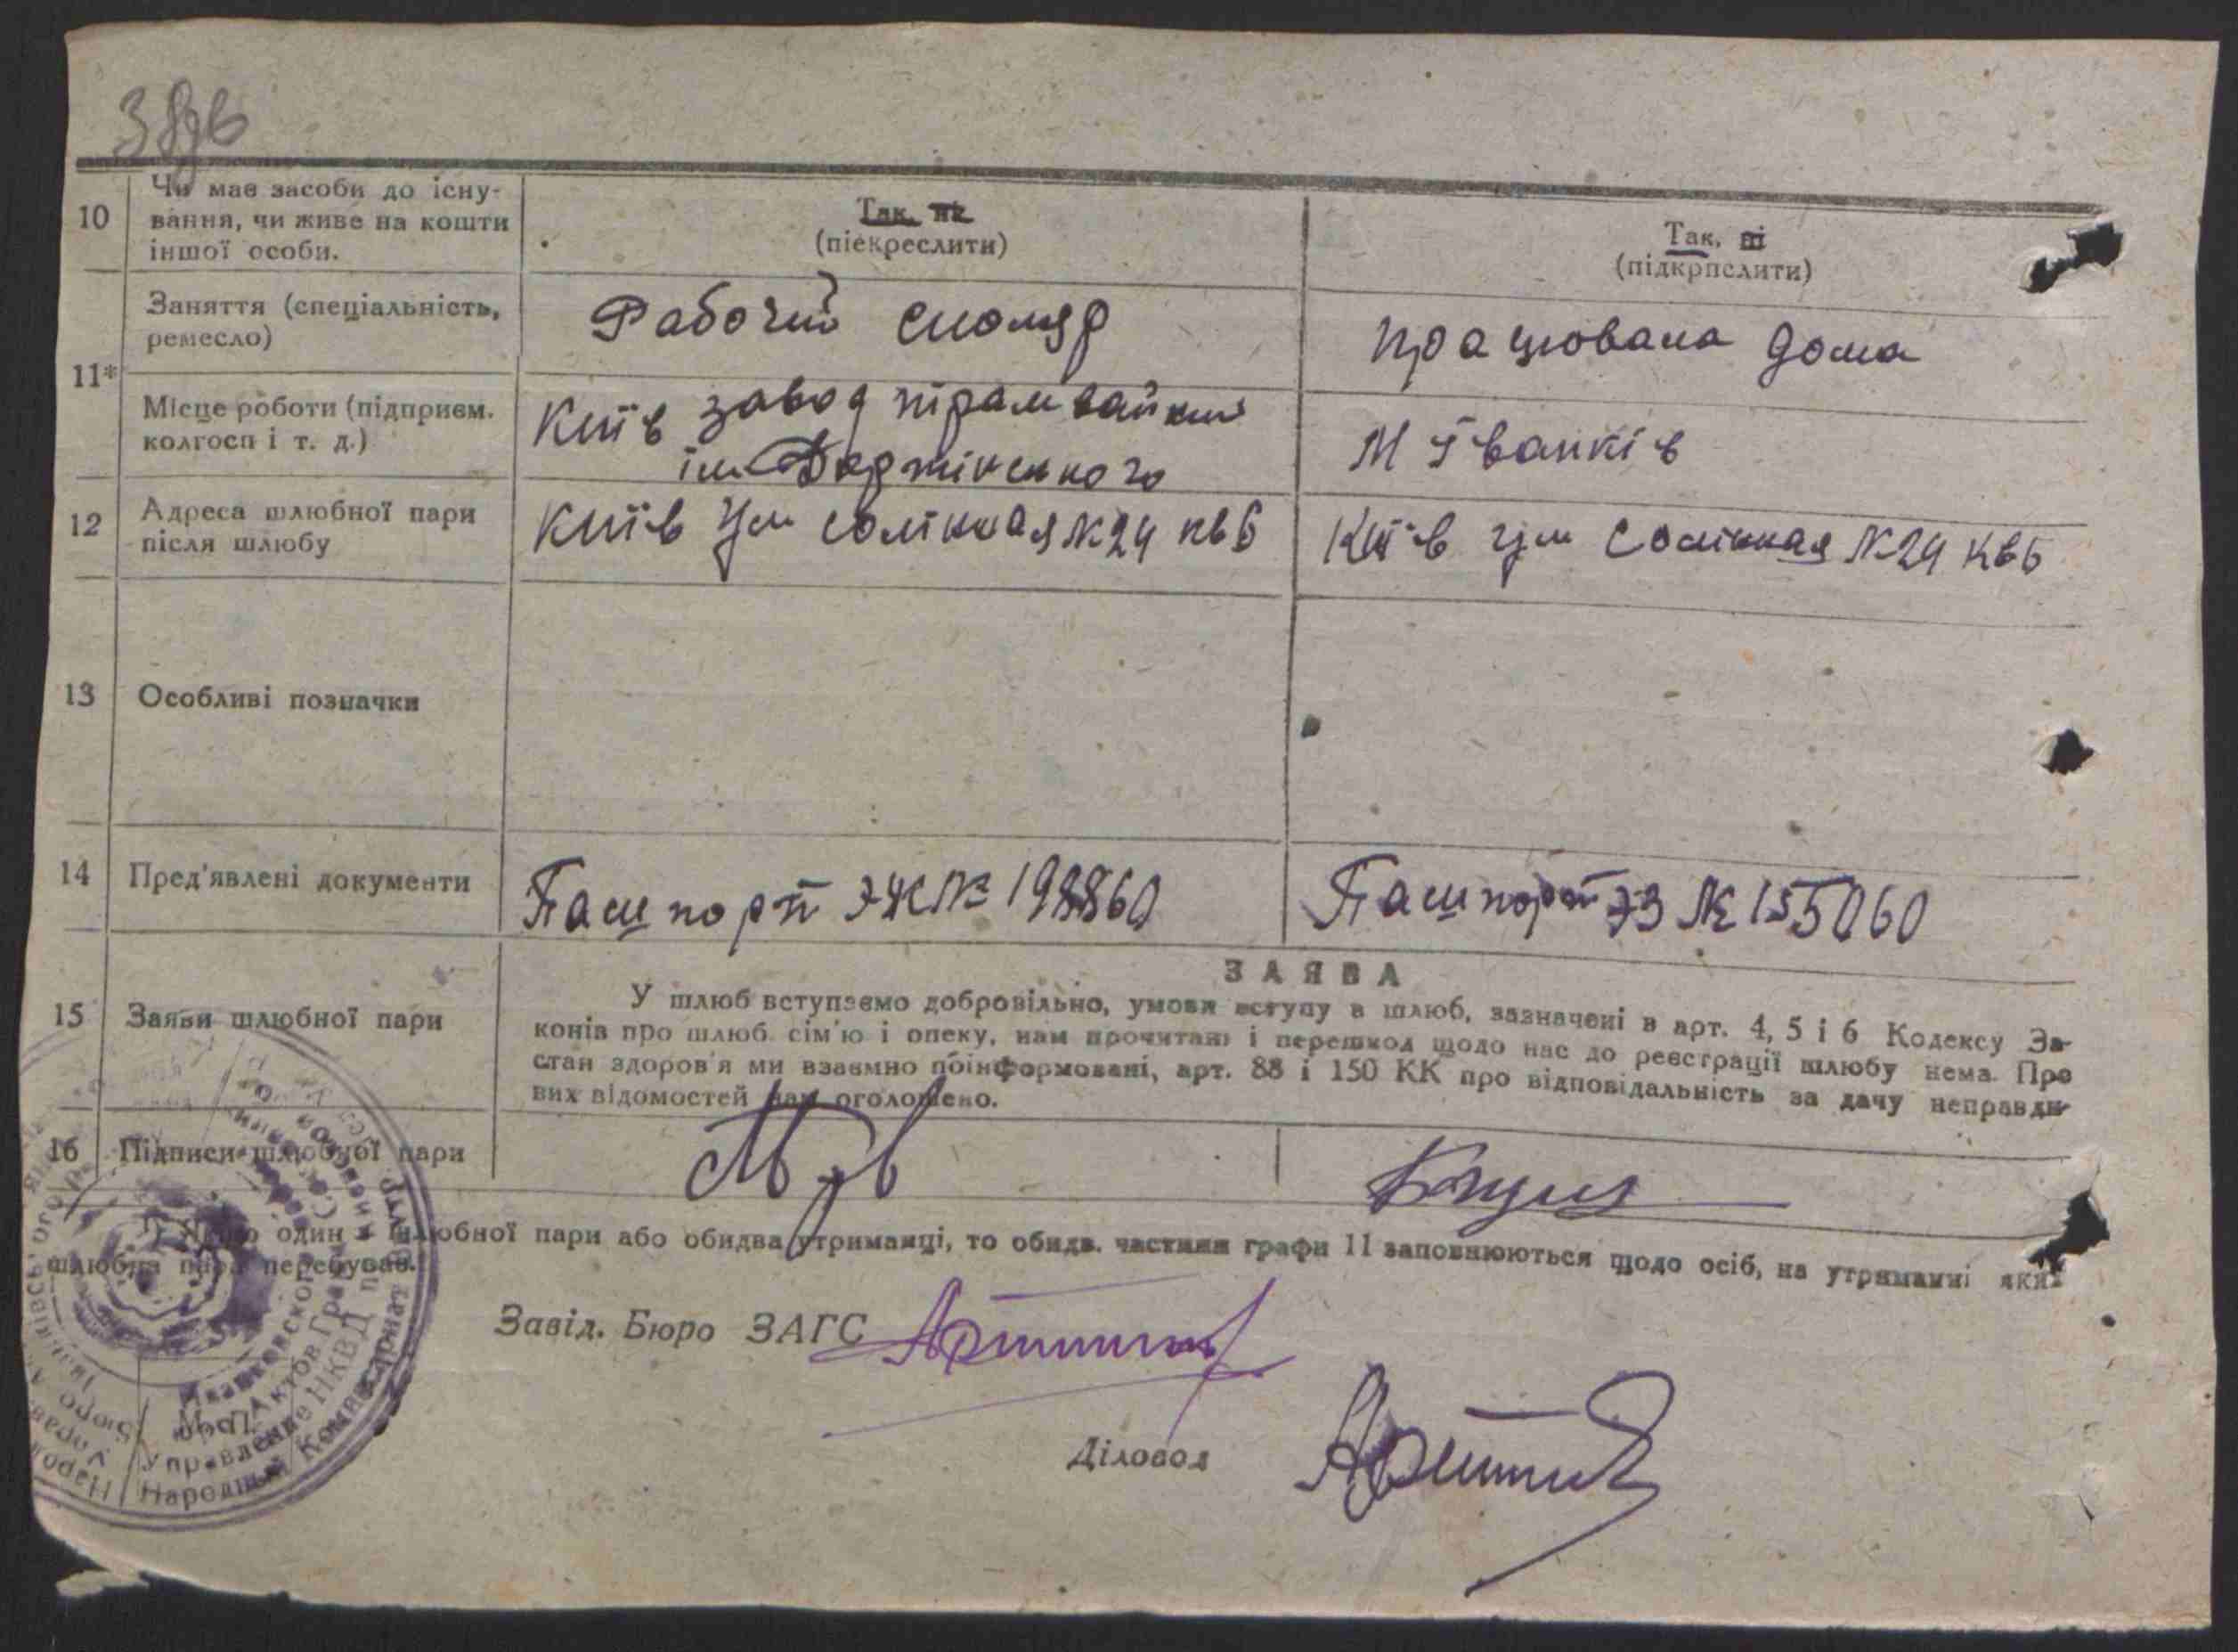 38
10
Чи має засоби до існу-
вання, чи живе на кошти
іншої особи.
Так, ні
(піекреслити)
Так, ні
(підкрпслити)
11*
Заняття (спеціальність,
ремесло)
Рабочий столяр
працювала дома
Місце роботи (підприєм.
колгосп і т. д.)
Київ завод трамвайний
ім Держінського
М Іванків
12
Адреса шлюбної пари
після шлюбу
Київ Ул №24 кв 6
Київ ул №24 кв 6
13
Особливі позначки
14
Пред'явлені документи
Пашпорт ЭЖ № 198860
Пашпорт ЭЗ № 155060
15
Заяви шлюбної пари
ЗАЯВА
У шлюб вступаємо добровільно, умови вступу в шлюб, зазначені в арт. 4, 5 і 6 Кодексу За-
конів про шлюб сім'ю і опеку, нам прочитані і перешкод щодо нас до реєстрації шлюбу нема. Про
стан здоров'я ми взаємно поінформовані, арт. 88 і 150 КК про відповідальність за дачу неправди-
вих відомостей нам оголошено.
16
Підписи шлюбної пари
*) Якщо один з шлюбної пари або обидва утриманці, то обидв. частини графи 11 заповнюються щодо осіб, на утриманні яких
шлюбна пара перебуває.
Завід. Бюро ЗАГС
М. П.
Діловод
Иванковского
Актов Граж
Управление НКВД
Народный Комиссариат